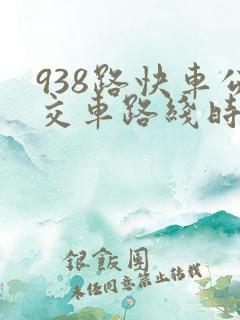 938路快車公
交車路綫時
銀飯團
未经同意禁止转载